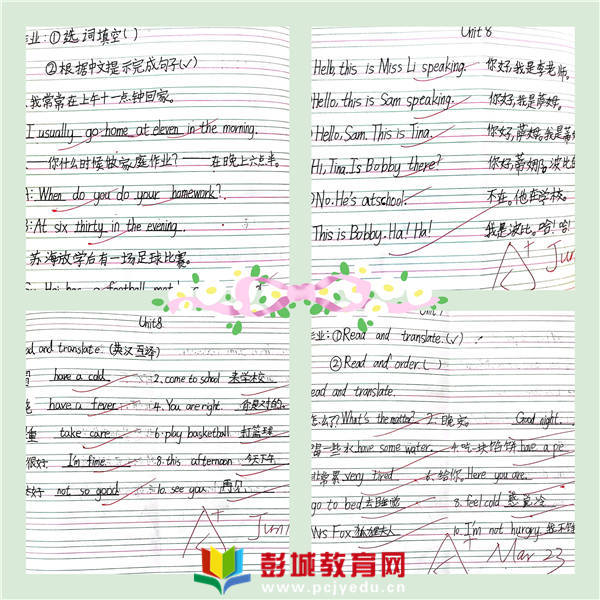 业：①选词填空( )
②根据中文提示完成句子(√)
我常常在上午十一点钟回家。
I usually go home at eleven in the morning.
——你什么时候做家庭作业？——在晚上六点半。
A: When do you do your homework?
B: At six thirty in the evening.
苏海放学后有一场足球比赛。
Su Hai has a football mat
Unit 8
Hello, this is Miss Li speaking. 你好，我是李老师。
Hello, this is Sam speaking. 你好，我是萨姆。
Hello, Sam. This is Tina. 你好，萨姆，我是蒂
Hi, Tina. Is Bobby there? 你好，蒂娜，波比
No. He's at school. 不在。他在学校。
This is Bobby. Ha! Ha! 我是波比。哈！哈！
A+ Jun
Unit8
ad and translate. (英汉互译)
have a cold 2. come to school 来学校
have a fever 4. You are right. 你是对的。
take care 6. play basketball 打篮球
很好 I'm fine 8. this afternoon 今天下午
太好 not so good 10. see you 再见
A+ Jun
业：①Read and translate. (√)
②Read and order. ( )
ead and translate.
怎么了? What's the matter? 2. 晚安。 Good night.
喝一些水 have some water. 4. 吃一块馅饼 have a pie
非常累 very tired 6. 给你。 Here you are.
go to bed 去睡觉 8. feel cold 感觉冷
Ws Fox 狐狸夫人 10. I'm not hungry.
A+ Mar 23
彭城教育网
www.pcjyedu.cn